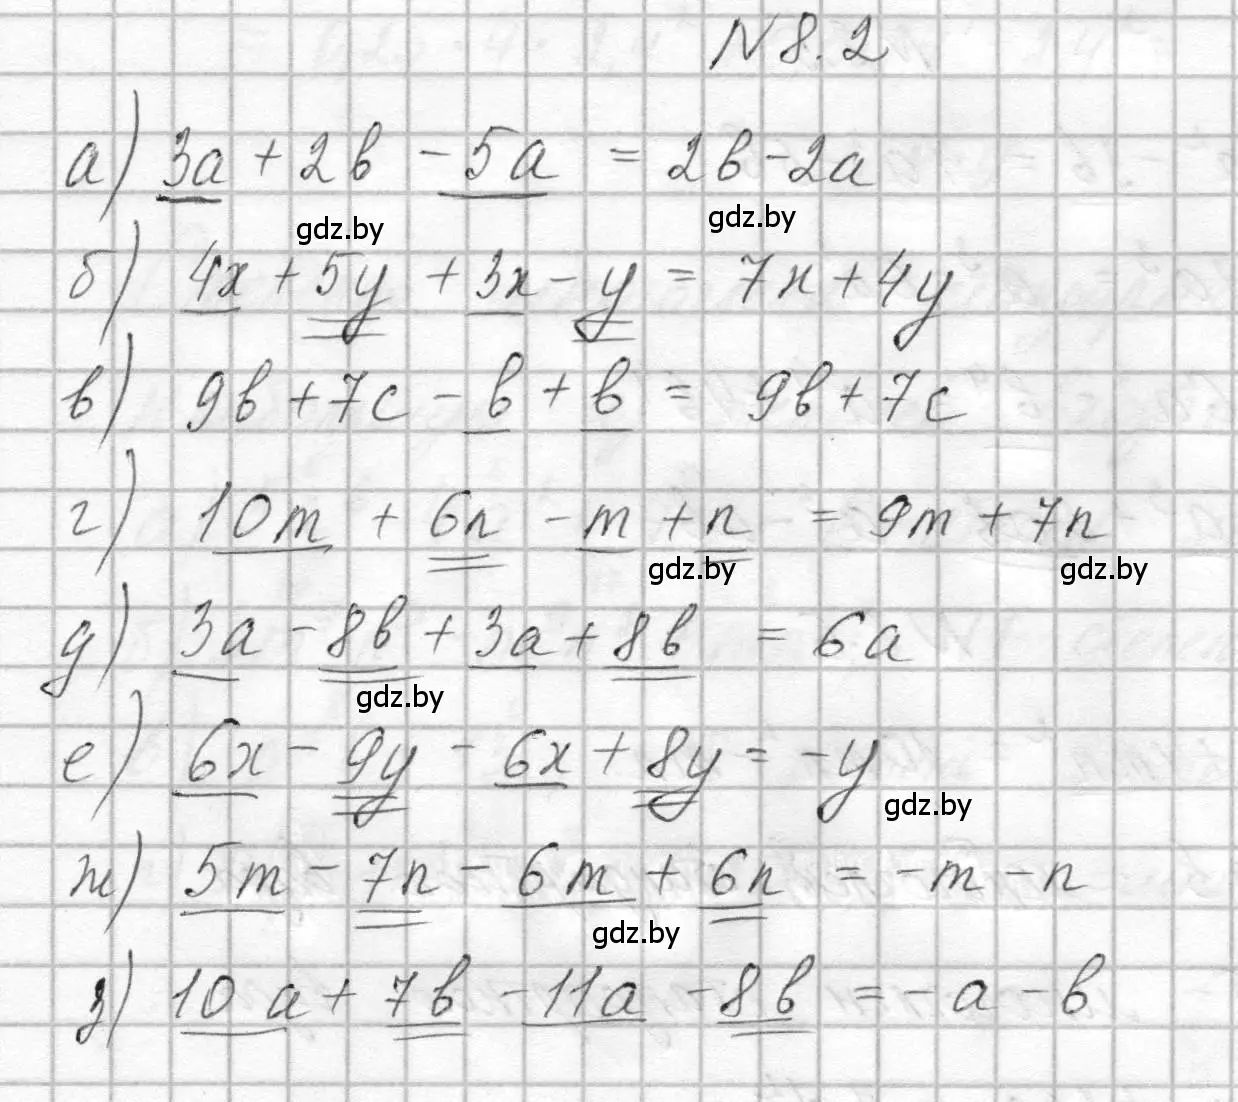 N 8.2
а) 3a + 2b - 5a = 2b - 2a
gdz.by gdz.by
б) 4x + 5y + 3x - y = 7x + 4y
в) 9b + 7c - b + b = 9b + 7c
г) 10m + 6n - m + n = 9m + 7n
gdz.by gdz.by
д) 3a - 8b + 3a + 8b = 6a
gdz.by
е) 6x - 9y - 6x + 8y = -y
gdz.by
ж) 5m - 7n - 6m + 6n = -m - n
gdz.by
з) 10a + 7b - 11a - 8b = -a - b